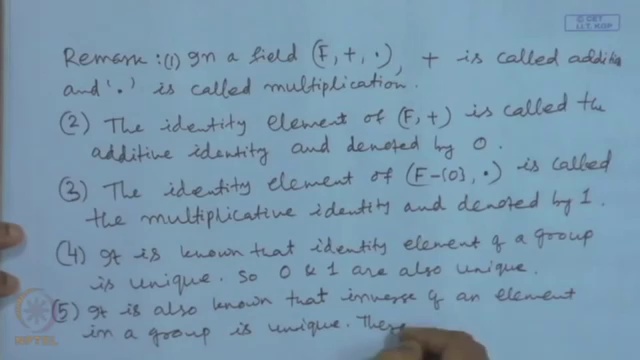 © CET
I.I.T. KGP
Remark : (1) In a field (F, +, ·), + is called additi
and '·' is called multiplication.
(2) The identity element of (F, +) is called the
additive identity and denoted by 0.
(3) The identity element of (F-{0}, ·) is called
the multiplicative identity and denoted by 1.
(4) It is known that identity element of a group
is unique. So 0 & 1 are also unique.
(5) It is also known that inverse of an element
in a group is unique. There
NPTEL